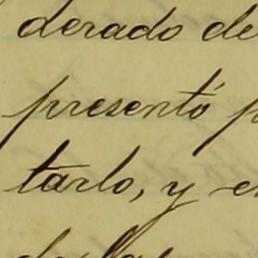 derado de
presentó p
tarlo, y e